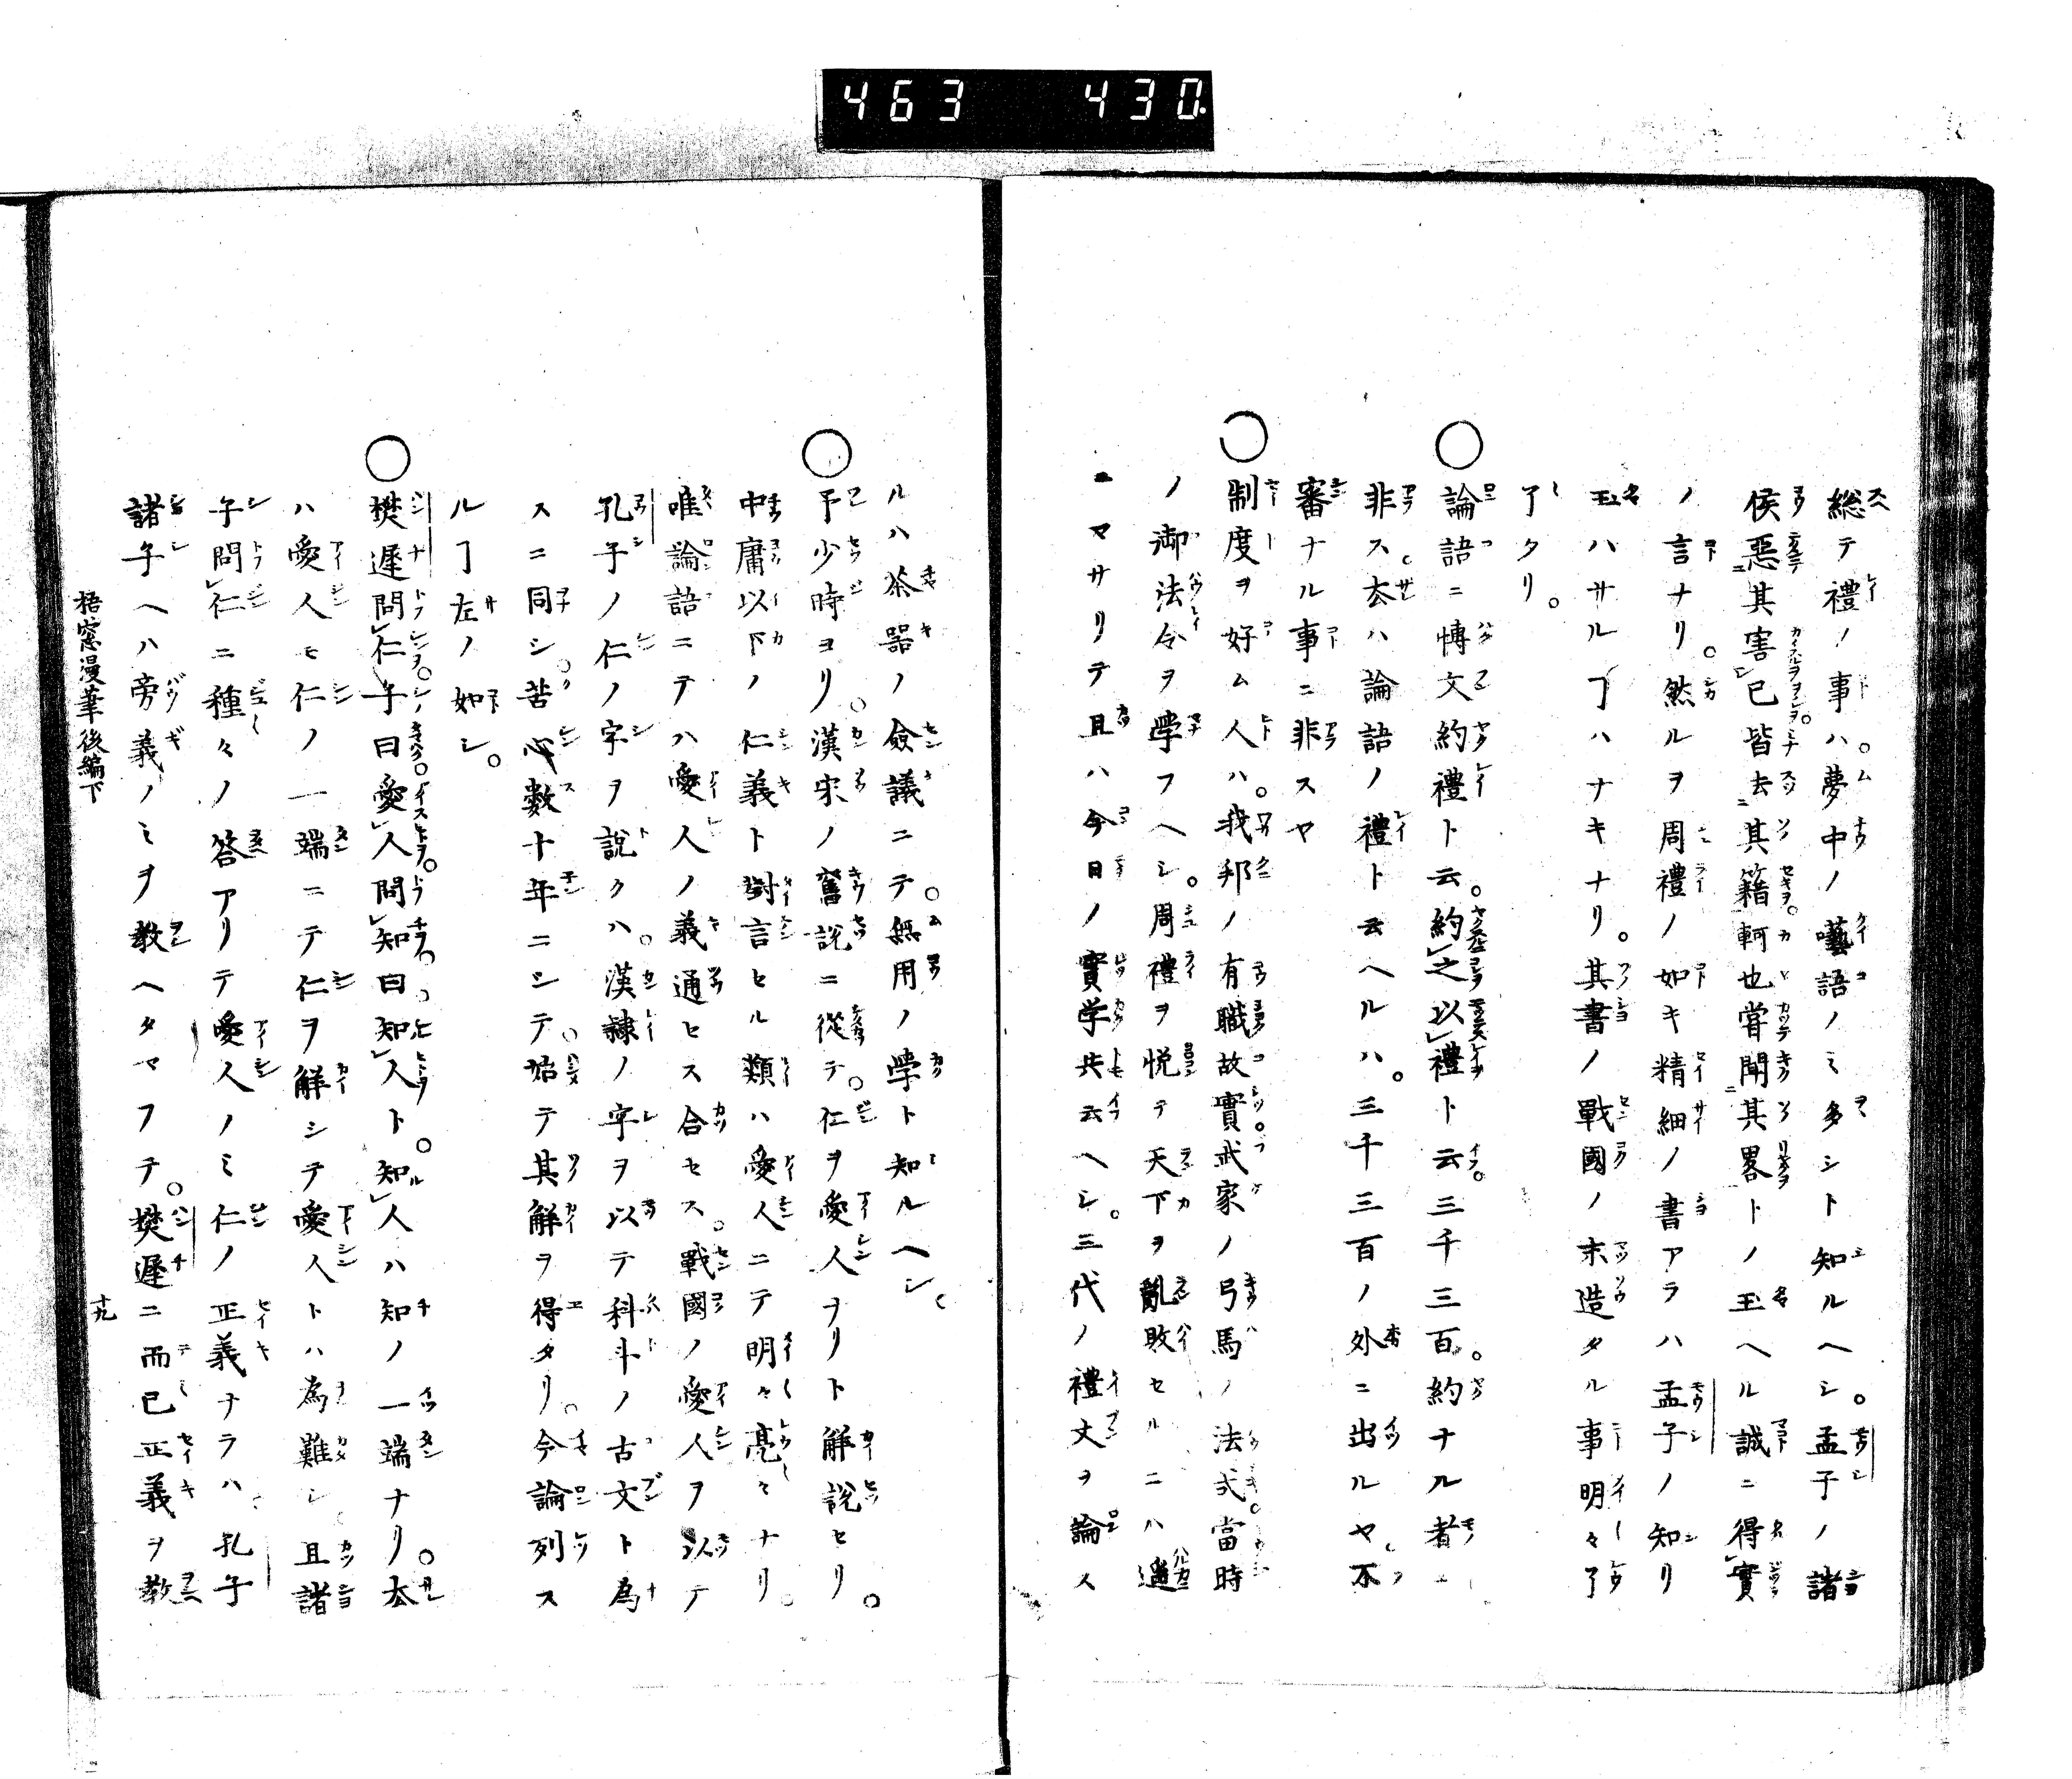 463 430
総テ禮ノ事ハ。夢中ノ囈語ノミ多シト知ルヘシ。孟子ノ諸
侯惡其害己皆去其籍軻也嘗聞其畧トノ玉ヘル誠ニ得實
ノ言ナリ。然ルヲ周禮ノ如キ精細ノ書アラハ孟子ノ知リ
玉ハサルヿハナキナリ。其書ノ戰國ノ末造タル事明々了
了タリ。
○論語ニ博文約禮ト云。約之以禮ト云。三千三百。約ナル者ニ
非ス。去ハ論語ノ禮ト云ヘルハ。三千三百ノ外ニ出ルヤ。不
審ナル事ニ非スヤ
○制度ヲ好ム人ハ。我邦ノ有職故實。武家ノ弓馬ノ法式。當時
ノ御法令ヲ學フヘシ。周禮ヲ悦テ天下ヲ亂敗セルニハ遥
ニマサリテ且ハ今日ノ實学共云ヘシ。三代ノ禮文ヲ論ス
ルハ茶器ノ僉議ニテ。無用ノ學ト知ルヘシ
○予少時ヨリ。漢宋ノ舊説ニ從テ。仁ヲ愛人ヲリト解説セリ。
中庸以下ノ仁義ト對言セル類ハ愛人ニテ明々亮々ナリ。
唯論語ニテハ愛人ノ義通セス合セス。戰國ノ愛人ヲ以テ
孔子ノ仁ノ字ヲ説クハ。漢隷ノ字ヲ以テ科斗ノ古文ト為
スニ同シ。苦心数十年ニシテ。始テ其解ヲ得タリ。今論列ス
ルヿ左ノ如シ。
○樊遲問仁子曰愛人問知曰。知人ト。知人ハ知ノ一端ナリ。去
ハ愛人モ仁ノ一端ニテ仁ヲ解シテ愛人トハ為難シ且諸
子問仁ニ種々ノ答アリテ愛人ノミ仁ノ正義ナラハ孔子
諸子ヘハ旁義ノミヲ教ヘタマフテ。樊遲ニ而已正義ヲ教
梧窓漫筆後編下
十九